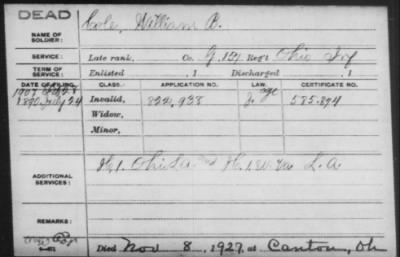 DEAD
NAME OF SOLDIER: Cole, William B.
SERVICE: Late rank, Co. G, 157 Reg't Ohio Inf
TERM OF SERVICE: Enlisted , 1 Discharged , 1
DATE OF FILING. CLASS. APPLICATION NO. LAW. CERTIFICATE NO.
1907
1890, July 24 Invalid, 822,938 age 585.874
Widow,
Minor,
ADDITIONAL SERVICES: Ohio L. A
REMARKS:
Died Nov 8, 1927, at Canton, Oh